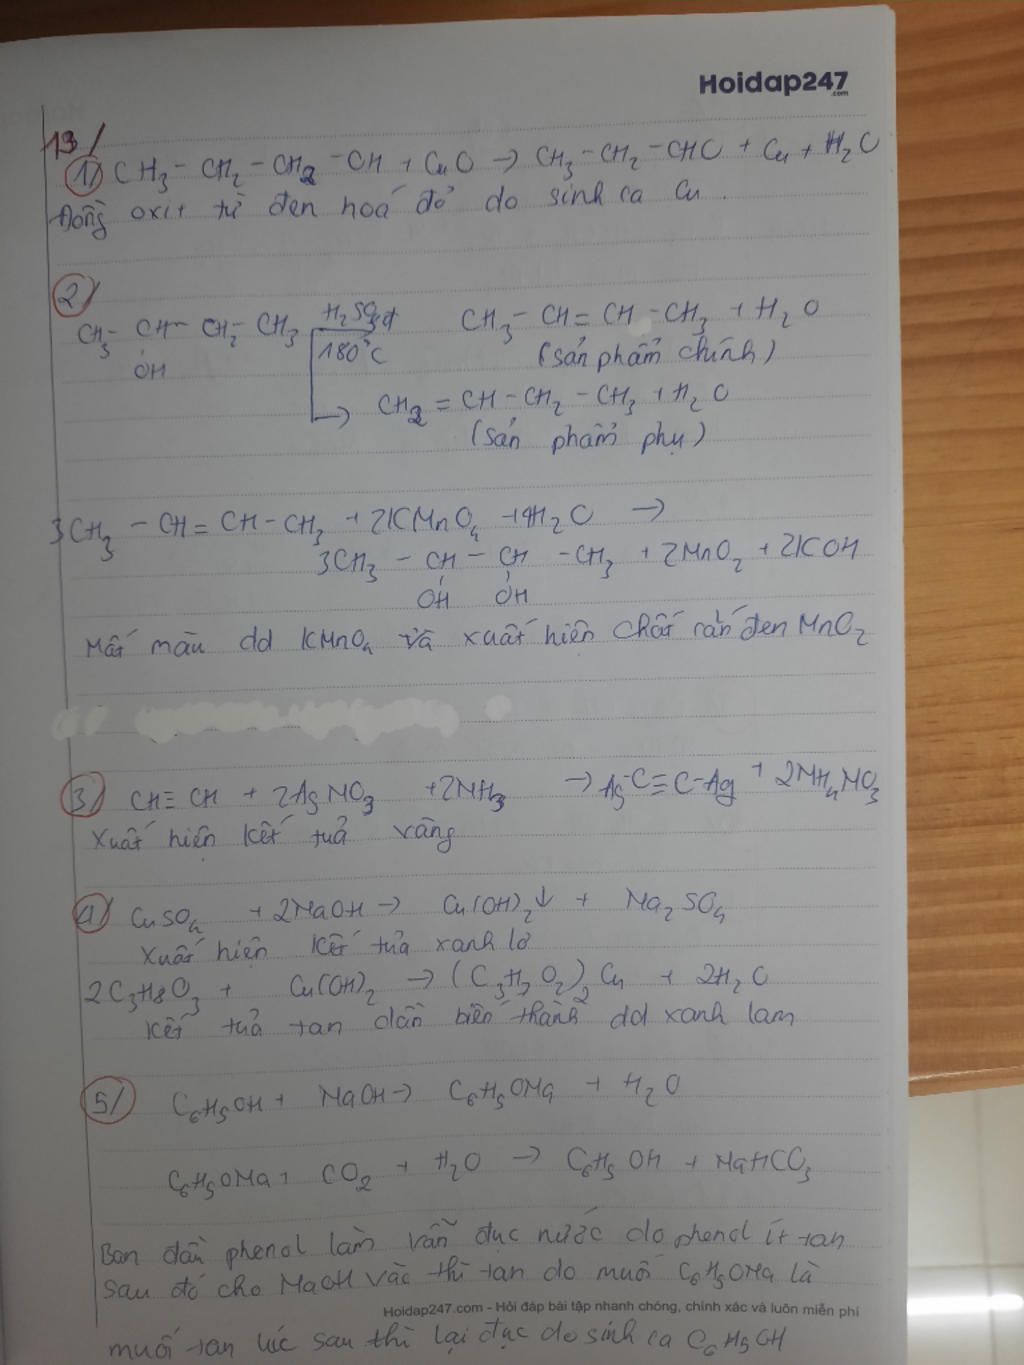 Hoidap247
.com
13/
1) CH3 - CH2 - CH2 - OH + CuO → CH3 - CH2 - CHO + Cu + H2O
Đồng oxit từ đen hoá đỏ do sinh ra Cu.
2/
CH3 - CH - CH2 - CH3 H2SO4đ CH3 - CH = CH - CH3 + H2O
OH 180°C (sản phẩm chính)
→ CH2 = CH - CH2 - CH3 + H2O
(sản phẩm phụ)
3CH3 - CH = CH - CH3 + 2KMnO4 + 4H2O →
3CH3 - CH - CH - CH3 + 2MnO2 + 2KOH
OH OH
Mất màu dd KMnO4 và xuất hiện chất rắn đen MnO2
3/ CH ≡ CH + 2AgNO3 + 2NH3 → Ag-C≡C-Ag + 2NH4NO3
Xuất hiện kết tủa vàng
4/ CuSO4 + 2NaOH → Cu(OH)2↓ + Na2SO4
Xuất hiện kết tủa xanh lơ
2C3H8O3 + Cu(OH)2 → (C3H7O2)2Cu + 2H2O
Kết tủa tan dần biến thành dd xanh lam
5/ C6H5OH + NaOH → C6H5ONa + H2O
C6H5ONa + CO2 + H2O → C6H5OH + NaHCO3
Ban đầu phenol làm vẩn đục nước do phenol ít tan
Sau đó cho NaOH vào thì tan do muối C6H5ONa là
Hoidap247.com - Hỏi đáp bài tập nhanh chóng, chính xác và luôn miễn phí
muối tan lúc sau thì lại đục do sinh ra C6H5OH